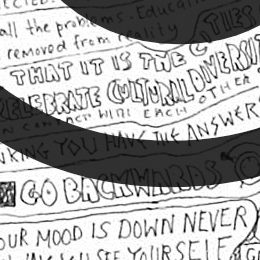 all the problems. Educati
removed from reality
CITIES
THAT IT IS THE
CELEBRATE CULTURAL DIVERSIT
IN CONTACT WITH EACH OTHER
NKING YOU HAVE THE ANSWERS
GO BACKWARDS
OUR MOOD IS DOWN NEVER
SEE YOURSELF